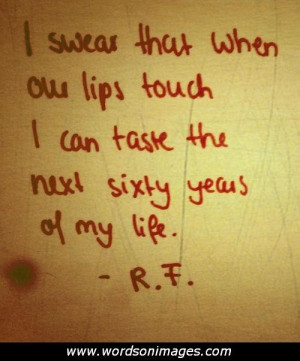 I swear that when
our lips touch
I can taste the
next sixty years
of my life.
- R.F.
www.wordsonimages.com